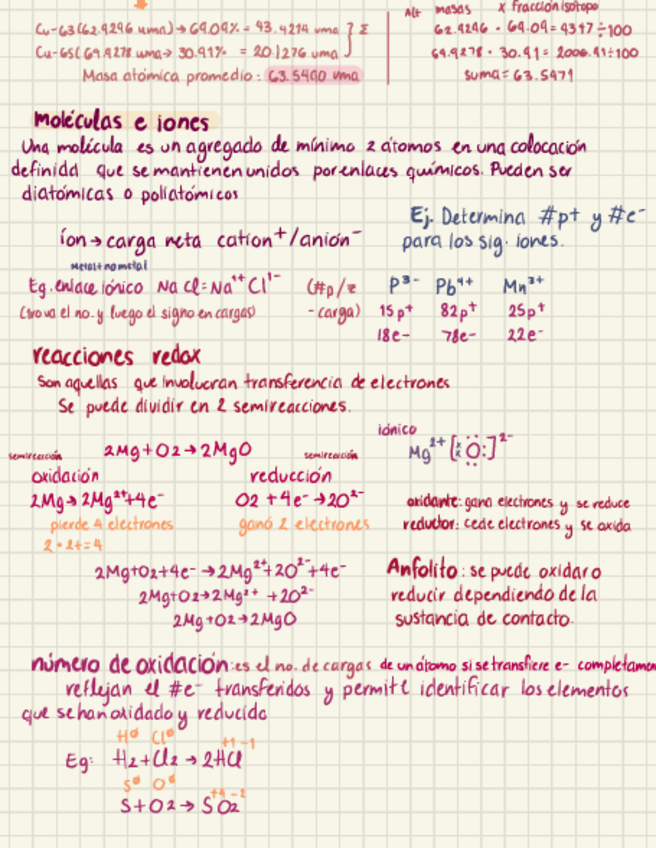 Cu-63 (62.9296 uma) → 69.09% = 43.4214 uma } Σ
Cu-65 (64.9278 uma → 30.91% = 20.1276 uma
Masa atómica promedio: 63.5490 uma
Alt masas x fracción isótopo
62.9296 · 69.09 = 4347 ÷ 100
64.9278 · 30.91 = 2006.91 ÷ 100
suma = 63.5471
moléculas e iones
Una molécula es un agregado de mínimo 2 átomos en una colocación
definida que se mantienen unidos por enlaces químicos. Pueden ser
diatómicas o poliatómicos
ión → carga neta catión⁺/anión⁻
Metal + no metal
Eg. enlace iónico NaCl = Na¹⁺Cl¹⁻
(so va el no. y luego el signo en cargas)
Ej. Determina #p+ y #e-
para los sig. iones.
(#p/z - carga)
P³⁻ Pb⁴⁺ Mn³⁺
15p⁺ 82p⁺ 25p⁺
18e- 78e- 22e-
reacciones redox
Son aquellas que involucran transferencia de electrones
Se puede dividir en 2 semireacciones.
2Mg + O2 → 2MgO
semireacción
oxidación
2Mg → 2Mg²⁺+4e⁻
pierde 4 electrones
2 · 2+ = 4
semireacción
reducción
O2 + 4e⁻ → 2O²⁻
ganó 2 electrones
iónico
Mg²⁺ [:O:]²⁻
oxidante: gana electrones y se reduce
reductor: cede electrones y se oxida
2Mg+O2+4e⁻ → 2Mg²⁺+2O²⁻+4e⁻
2Mg+O2 → 2Mg²⁺ + 2O²⁻
2Mg+O2 → 2MgO
Anfolito: se puede oxidar o
reducir dependiendo de la
sustancia de contacto.
número de oxidación: es el no. de cargas de un átomo si se transfiere e- completamen
reflejan el #e⁻ transferidos y permite identificar los elementos
que se han oxidado y reducido
H⁰ Cl⁰ +1 -1
Eg: H2 + Cl2 → 2HCl
S⁰ O⁰ +4 -2
S + O2 → SO2